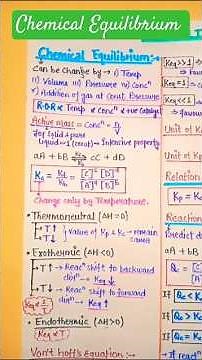 Chemical Equilibrium
Chemical Equilibrium:→
Can be change by → i) Temp
ii) Volume iii) Pressure iv) Concⁿ
v) Addition of gas at const. Pressure
R.O.R ∝ Temp ∝ Concⁿ ∝ +ve Catalyst
Active mass = Concⁿ = n/V
for Solid & pure
liquid → 1 (const) → Intensive property
aA + bB ⇌ cC + dD
Kc = Kf/Kb = [C]^c [D]^d / [A]^a [B]^b
Change only by Temperature.
• Thermoneutral (ΔH=0)
T↑
T↓
Value of Kp & Kc → remain same
• Exothermic (ΔH<0)
T↑ → Reacⁿ shift to backward
dirⁿ → Keq ↓
T↓ → Reacⁿ shift to forward
dirⁿ → Keq ↑
Keq ∝ 1/T
• Endothermic (ΔH>0)
Keq ∝ T
Van't hoff's equation:→
Keq>>1 →
Keq=1 →
Keq<<1
Unit of K
Unit of K
Relation
Kp =
Reaction
Predict d
aA + bB
Qc = [C]
If Qc < K
If Qc = K
If Qc > K